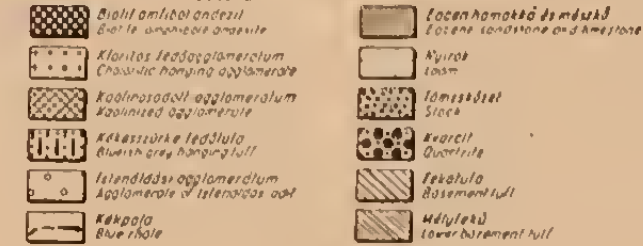 Biotit amfibol andezit
Biotite amphibole andesite
Kloritos fedőagglomerátum
Chloritic hanging agglomerate
Kaolinosodott agglomerátum
Kaolinized agglomerate
Kékesszürke fedőtufa
Blueish grey hanging tuff
Istenáldási agglomerátum
Agglomerate of Istenáldás adit
Kékpala
Blue shale
Eocén homokkő és mészkő
Eocene sandstone and limestone
Nyirok
Loam
Tömzskőzet
Stock
Kvarcit
Quartzite
Fekütufa
Basement tuff
Mélyfekü
Lower basement tuff